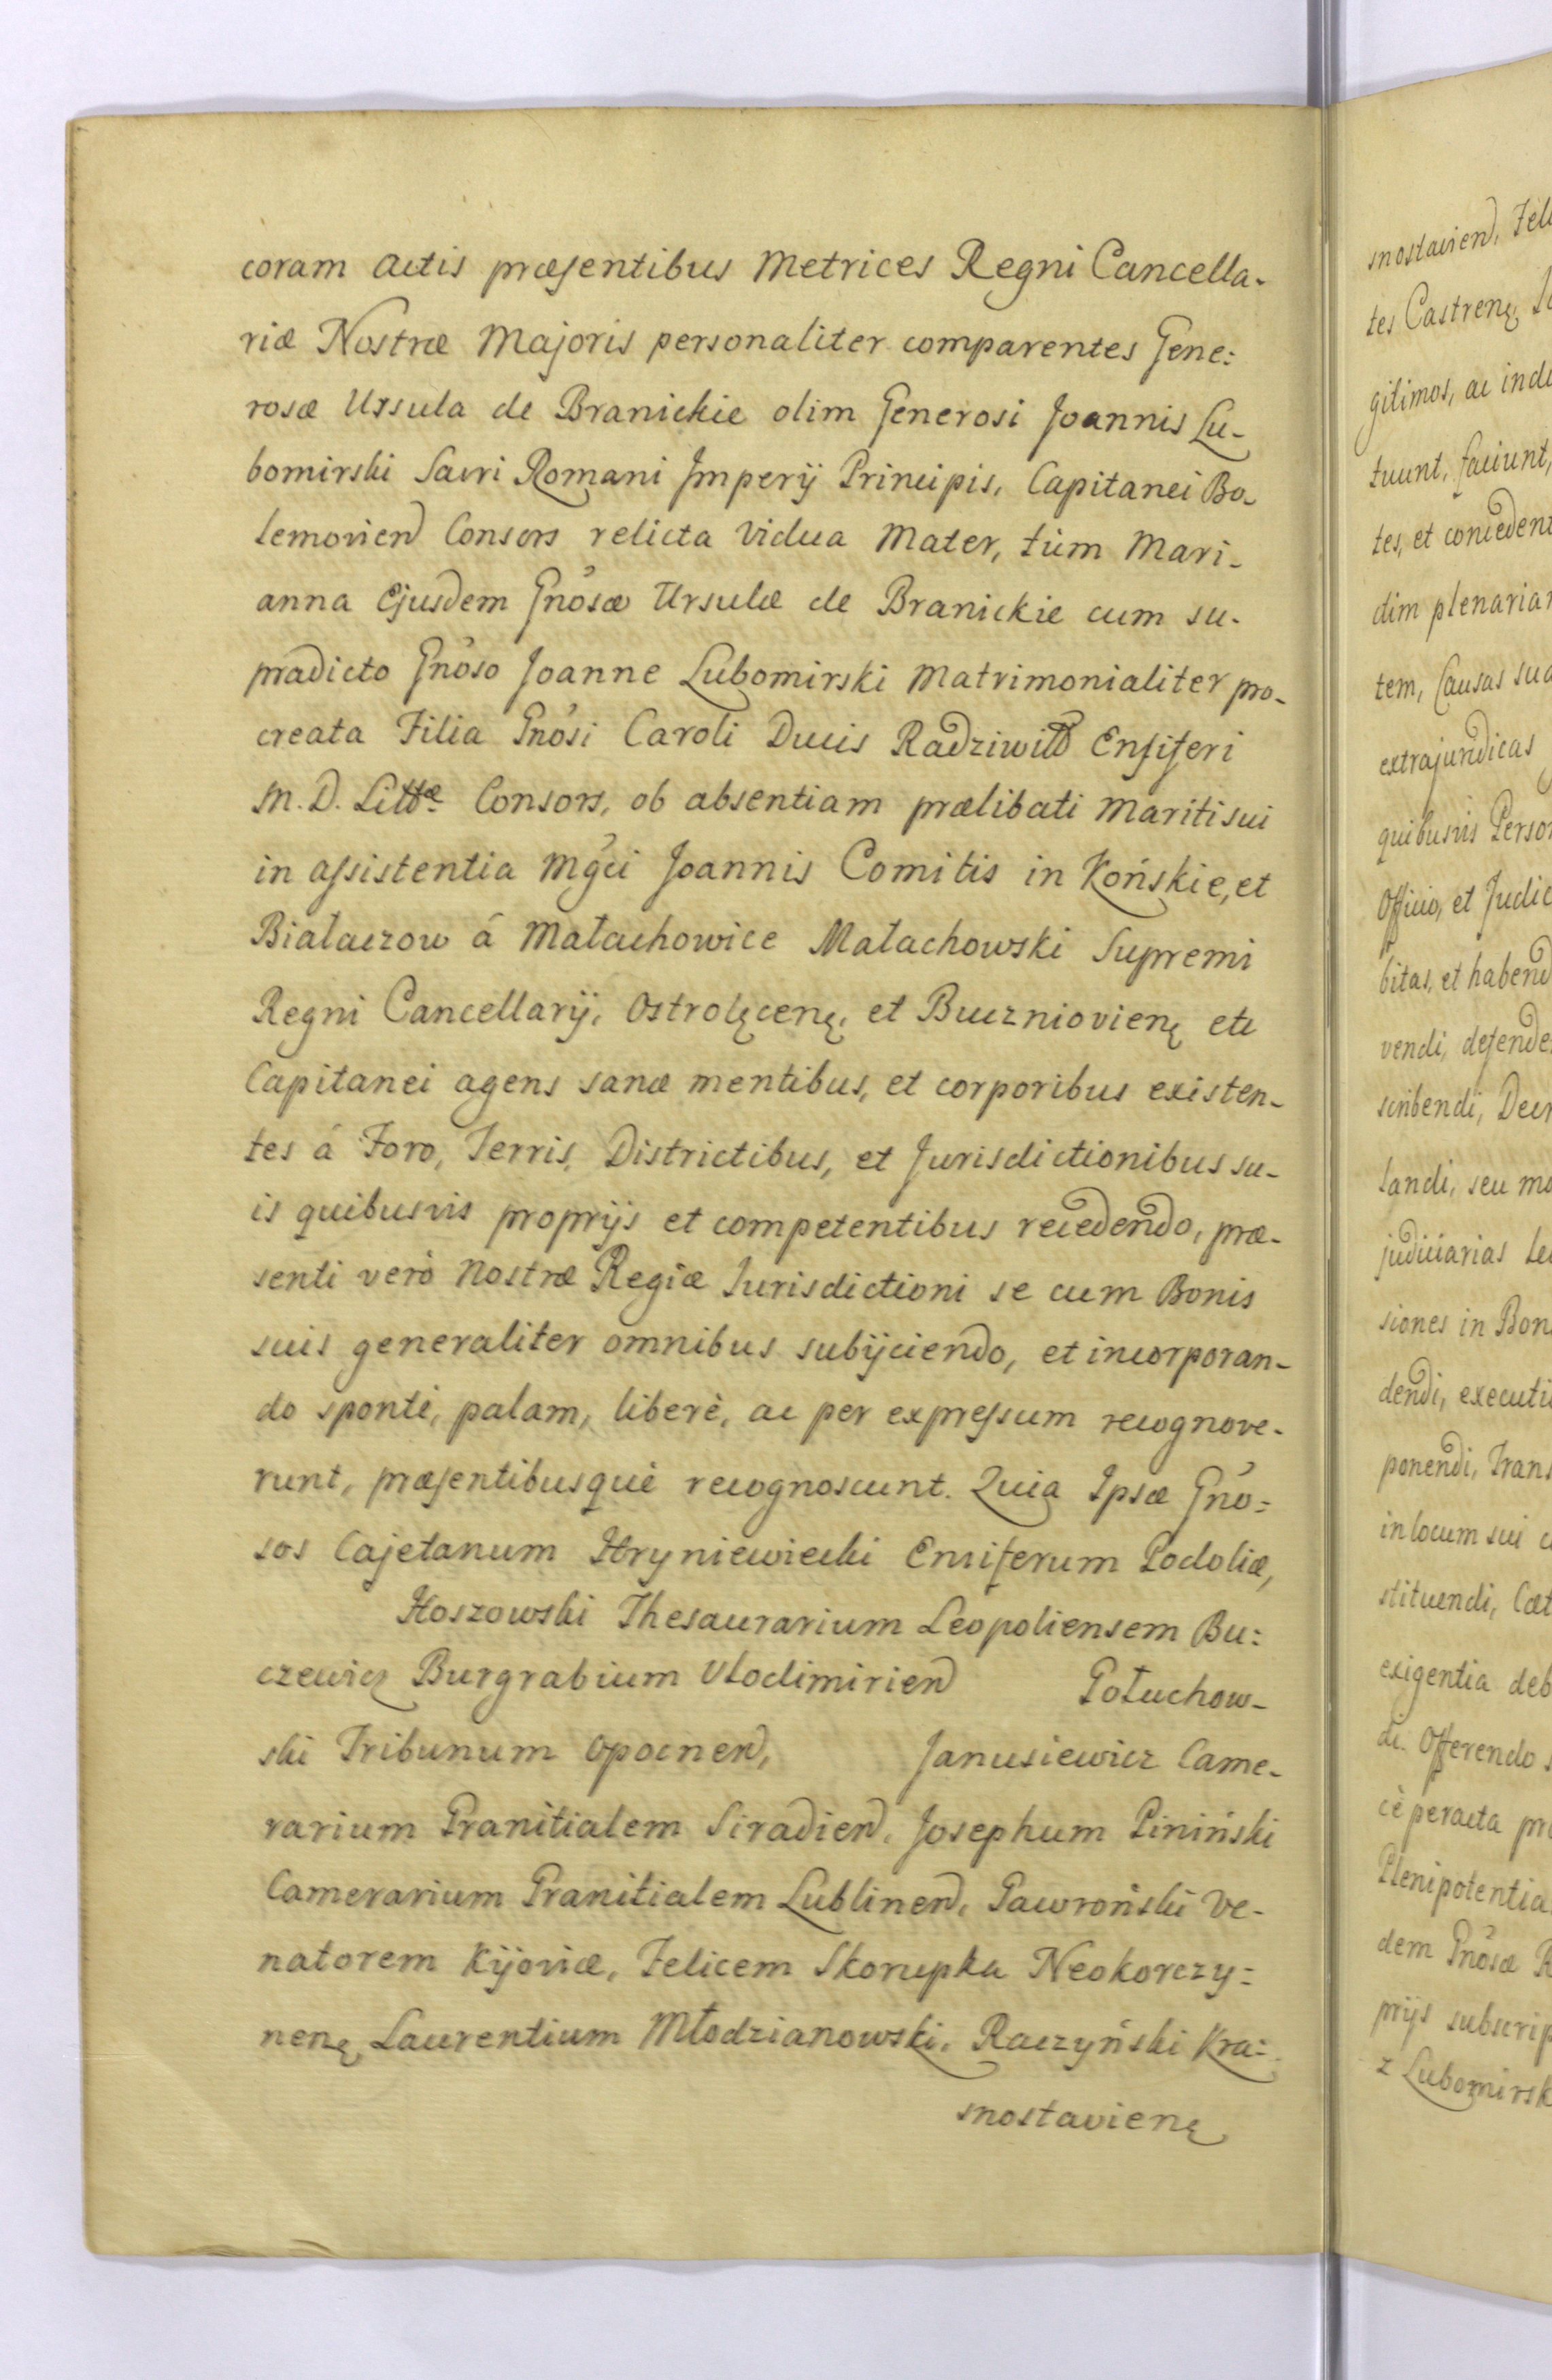 coram actis præsentibus Metrices Regni Cancella-
riæ Nostræ Majoris personaliter comparentes Gene:
rosæ Ursula de Branickie olim Generosi Joannis Lu-
bomirski Sacri Romani Imperij Principis, Capitanei Bo-
lemovien Consors relicta Vidua Mater, tùm Mari-
anna Ejusdem Gnosæ Ursulæ de Branickie cum su-
pradicto Gnoso Joanne Lubomirski Matrimonialiter pro-
creata Filia Gnosi Caroli Ducis Radziwiłł Ensiferi
M. D. Littæ Consors, ob absentiam prælibati Mariti sui
in assistentia Mgci Joannis Comitis in Końskie, et
Białaczow á Małachowice Małachowski Supremi
Regni Cancellarij, Ostrołęcenę, et Buczniovienę etc
Capitanei agens sanæ mentibus, et corporibus existen-
tes á Foro, Terris, Districtibus, et Jurisdictionibus su-
is quibusvis proprijs et competentibus recedendo, præ-
senti verò Nostræ Regiæ Jurisdictioni se cum Bonis
suis generaliter omnibus subijciendo, et incorporan-
do spontè, palam, liberè, ac per expressum recognove-
runt, præsentibusquè recognoscunt. Quia Ipsæ Gno:
sos Cajetanum Hryniewiecki Ensiferum Podoliæ,
Hoszowski Thesaurarium Leopoliensem Bu:
czewicz Burgrabium Vlodimirien Połuchow-
ski Tribunum Opocnen, Janusiewicz Came-
rarium Granitialem Siradien, Josephum Piniński
Camerarium Granitialem Lublinen, Gawroński Ve-
natorem Kijoviæ, Felicem Skorupka Neokorczy:
nenę Laurentium Młodzianowski, Raczyński Kra:
snostavienę
snostavien, Fel
tes Castrenę,
gitimos, ac ind
tuunt, faciunt,
tes, et concedent
dim plenariam
tem, Causas sua
extrajuridicas
quibusvis Person
Officio, et Judic
bitas, et habend
vendi, defende
scribendi, Decr
landi, seu mo
judiciarias
siones in Bon
dendi, executi
ponendi, Trans
in locum sui
stituendi, Cæt
exigentia deb
di. Offerendo
cè peracta
Plenipotentia
dem Gnosæ R
prijs subscrip
z Lubomirsk